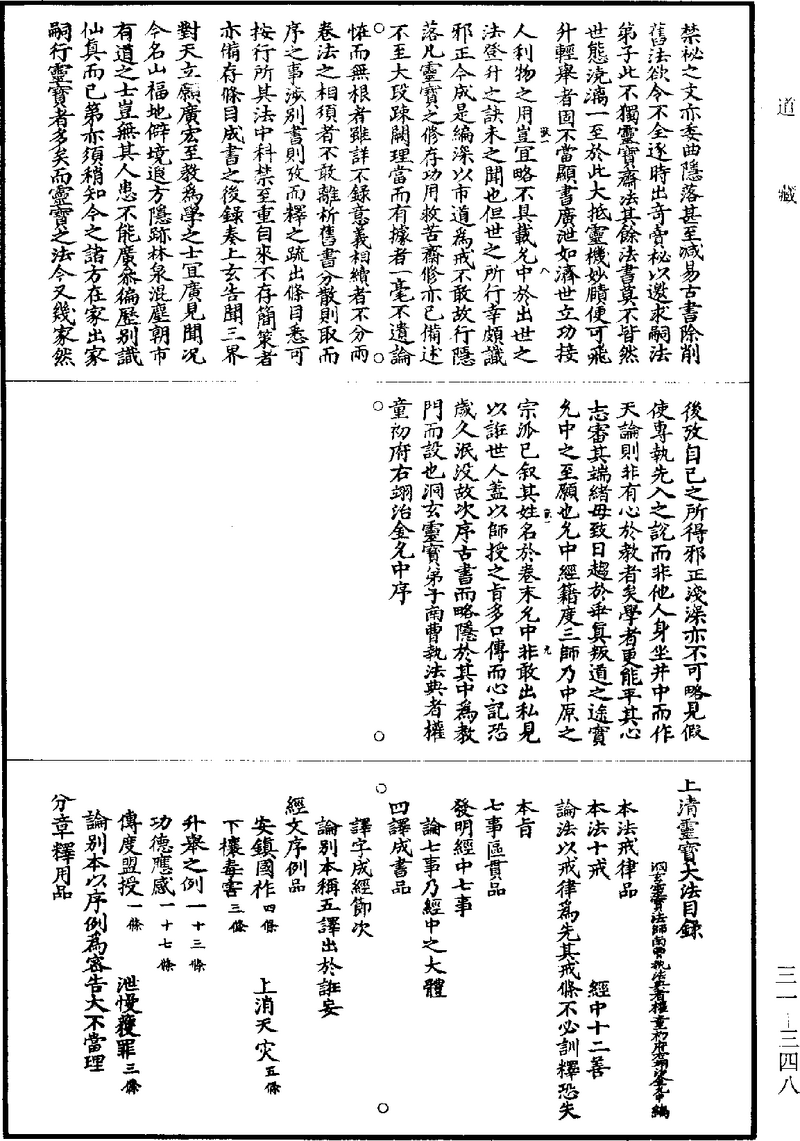 道藏
禁秘之文亦委曲隱落甚至減易古書除削
舊法欲令不全逐時出奇賣秘以邀求嗣法
弟子此不獨靈寶齋法其餘法書莫不皆然
世態澆漓一至於此大抵靈機妙賾便可飛
升輕舉者固不當顯書廣泄如濟世立功接
人利物之用豈宜略不具載允中於出世之
法登升之訣未之聞也但世之所行幸頗識
邪正今成是編深以市道為戒不敢故行隱
落凡靈寶之修存功用救苦齋修亦已備述
不至大段疎闕理當而有據者一毫不遺論
恠而無根者雖詳不錄意義相續者不分兩
卷法之相須者不敢離析舊書分散則取而
序之事涉別書則攷而釋之疏出條目悉可
按行所其法中科禁至重自來不存簡策者
亦備存條目成書之後錄奏上玄告聞三界
對天立願廣宏至教為學之士宜廣見聞況
今名山福地僻境遐方隱跡林泉混塵朝市
有道之士豈無其人患不能廣叅徧歷別識
仙真而已第亦須稍知今之諸方在家出家
嗣行靈寶者多矣而靈寶之法今又幾家然
後攷自己之所得邪正淺深亦不可略見假
使專執先入之說而非他人身坐井中而作
天論則非有心於教者矣學者更能平其心
志審其端緒毋致日趨於乖真叛道之途實
允中之至願也允中經籍度三師乃中原之
宗派已叙其姓名於卷末允中非敢出私見
以誑世人蓋以師授之旨多口傳而心記恐
歲久泯沒故次序古書而略隱於其中為教
門而設也洞玄靈寶弟子南曹執法典者權
童初府右翊治金允中序
上清靈寶大法目錄
洞玄靈寶法師南曹執法典者權童初府右翊治金允中編
本法戒律品
本法十戒　經中十二善
論法以戒律為先其戒條不必訓釋恐失
本旨
七事區貫品
發明經中七事
論七事乃經中之大體
四譯成書品
譯字成經節次
論別本稱五譯出於誑妄
經文序例品
安鎮國祚四條　上消天灾五條
下禳毒害三條
升舉之例一十三條
功德應感一十七條
傳度盟授一條　泄慢獲罪三條
論別本以序例為密告大不當理
分章釋用品
三一—三四八